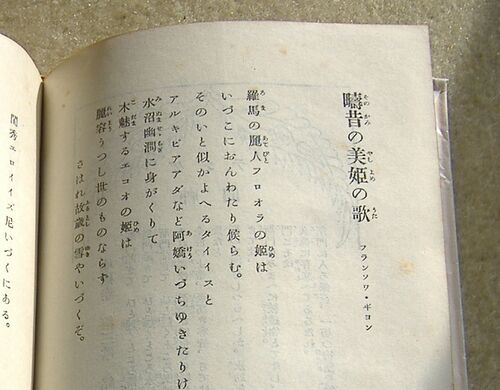 疇昔の美姫の歌
フランソワ・ギヨン
羅馬の麗人フロオラの姫は
いづこにおんわたり候らむ。
そのいと似かよへるタイイスと
アルキビアアダなど阿嬌いづちゆきたりけ
水沼幽澗に身がくりて
木魅するエコオの姫は
麗容うつし世のものならず
さはれ故歳の雪やいづくぞ。
閨秀エロイイズ尼いづくにある。